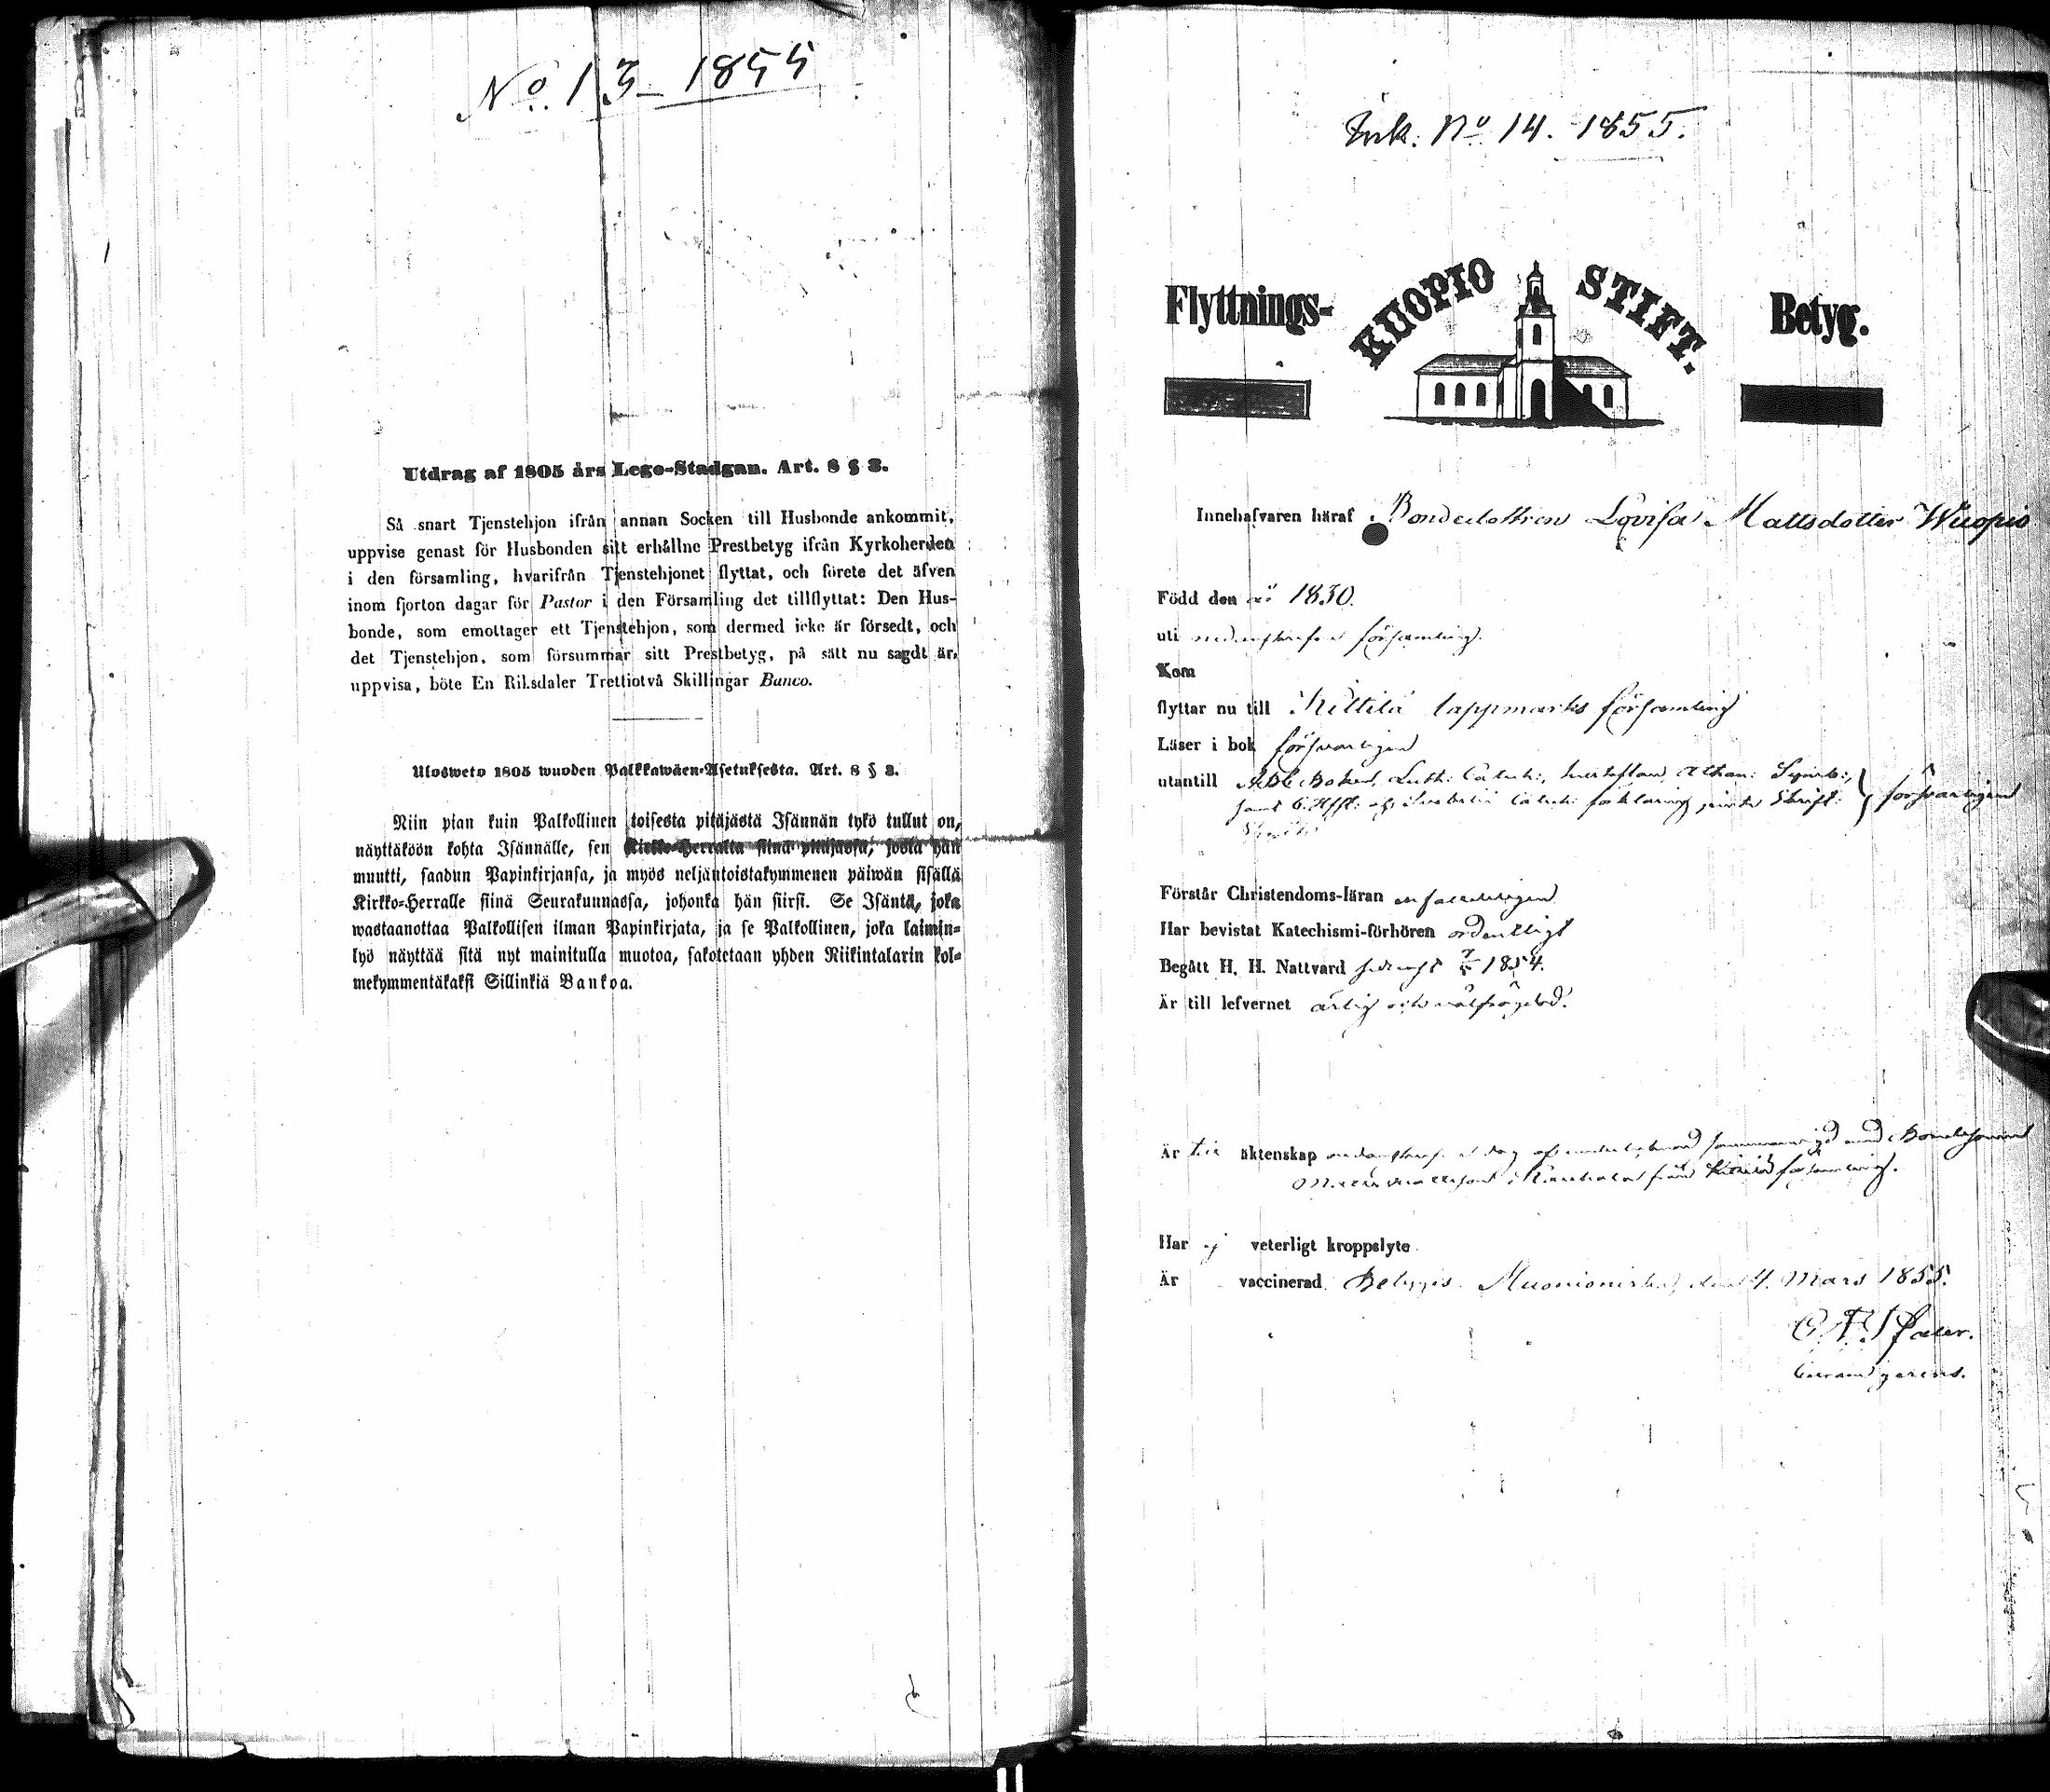 No. 13 - 1855
Utdrag af 1805 års Lego-Stadgan. Art. 8 § 8.
Så snart Tjenstehjon ifrån annan Socken till Husbonde ankommit,
uppvise genast för Husbonden sitt erhållne Prestbetyg ifrån Kyrkoherden
i den församling, hvarifrån Tjenstehjonet flyttat, och förete det äfven
inom fjorton dagar för Pastor i den Församling det tillflyttat: Den Hus-
bonde, som emottager ett Tjenstehjon, som dermed icke är försedt, och
det Tjenstehjon, som försummar sitt Prestbetyg, på sätt nu sagdt är,
uppvisa, böte En Riksdaler Trettiotvå Skillingar Banco.
Ulosweto 1805 wuoden Palkkawäen-Asetuksesta. Art. 8 § 8.
Niin pian kuin Palkollinen toisesta pitäjästä Isännän tykö tullut on,
näyttäköön kohta Isännälle, sen Kirkko-Herralta siinä pitäjässä, josta hän
muutti, saadun Papinkirjansa, ja myös neljäntoistakymmenen päiwän sisällä
Kirkko-Herralle siinä Seurakunnassa, johonka hän siirsi. Se Isäntä, joka
wastaanottaa Palkollisen ilman Papinkirjata, ja se Palkollinen, joka laimin-
lyö näyttää sitä nyt mainitulla muotoa, sakotetaan yhden Riikintalarin kol-
mekymmentäkaksi Sillinkiä Bankoa.
Ink. No 14. 1855.
Flyttnings- KUOPIO STIFT. Betyg.
Innehafvaren häraf Bondedottren Lovisa Mattsdotter Wuopio
Född den 1830.
uti församling.
Kom
flyttar nu till Kittilä lappmarks församling
Läser i bok försvarligen
utantill ABC Boken, Luth: Catech:, hustaflan, Athan: Symb:,
samt förklaring Skrift: försvarligen
Förstår Christendoms-läran
Har bevistat Katechismi-förhören ordentligt
Begått H. H. Nattvard sednast 1854.
Är till lefvernet ärlig och välfrägdad.
Är till äktenskap sammanvigd med Bondesonen
från församling.
Har ej veterligt kroppslyte
Är vaccinerad. Betygas Muonioniska den 4 Mars 1855.